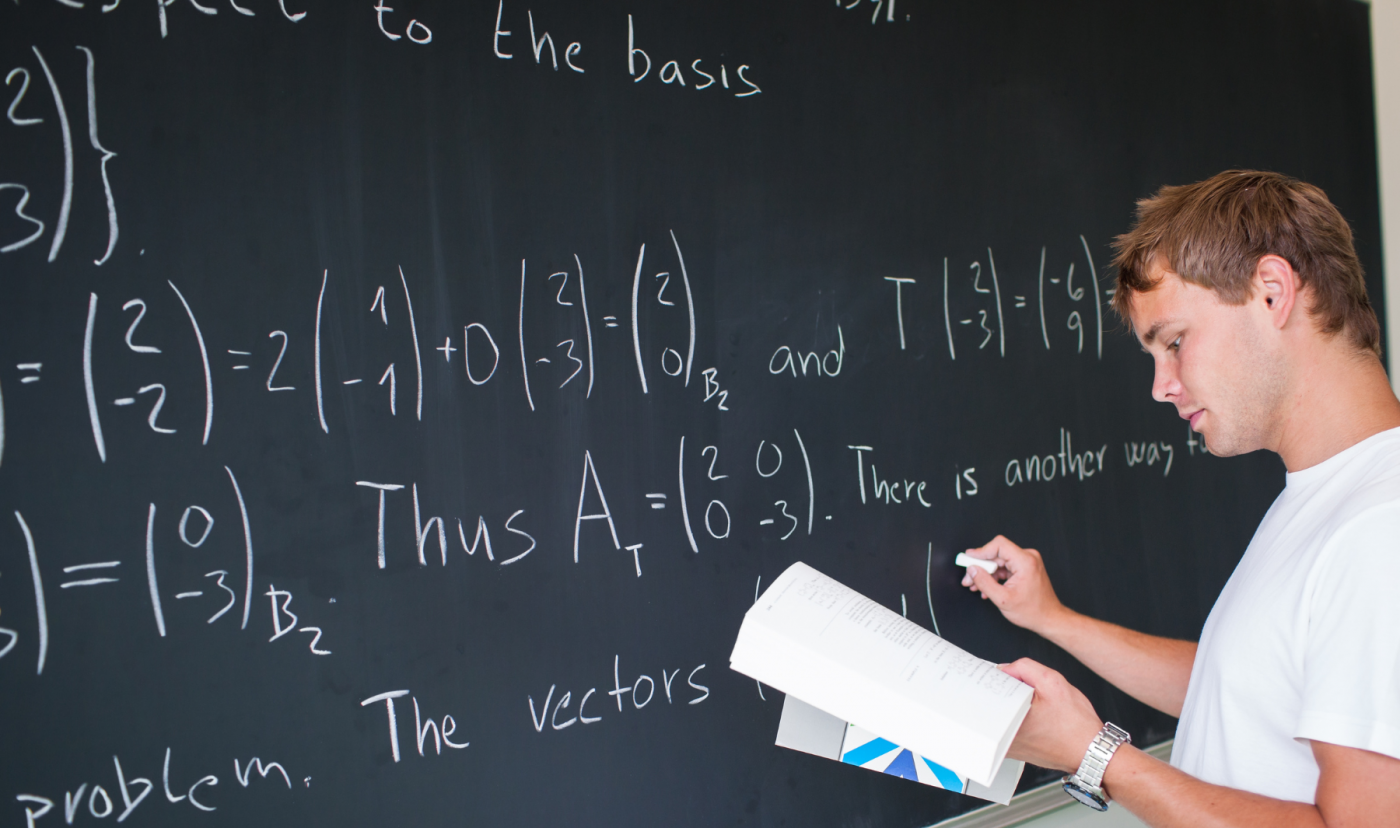 to the basis
2
3 ) } .
= ( 2 -2 ) = 2 ( 1 -1 ) + 0 ( 2 -3 ) = ( 2 0 )B2 and T ( 2 -3 ) = ( -6 9 )
) = ( 0 -3 )B2 Thus A_T = ( 2 0 0 -3 ) . There is another way
problem. The vectors (